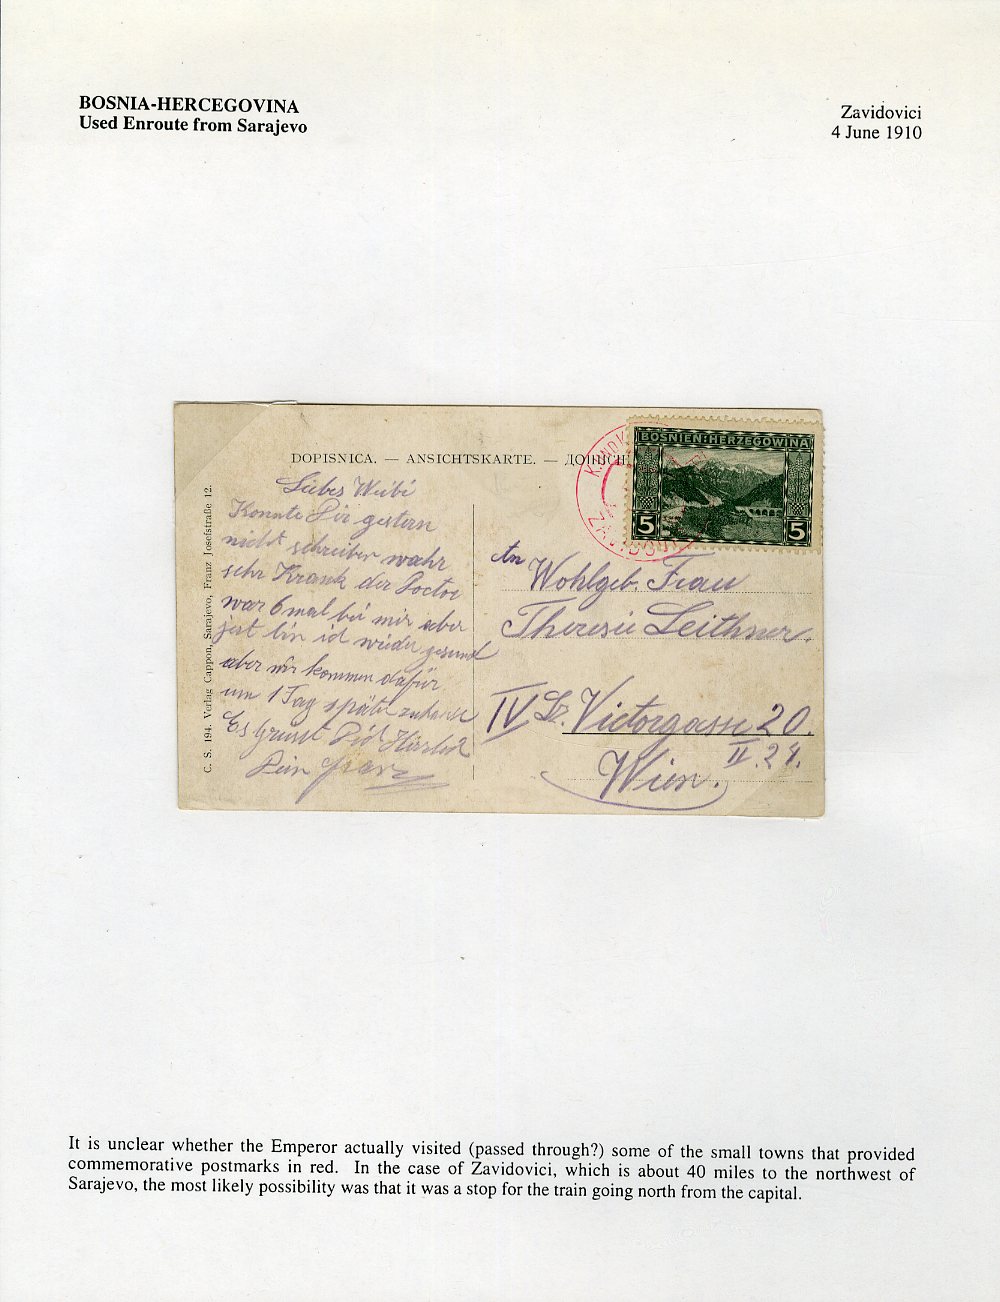 BOSNIA-HERCEGOVINA
Used Enroute from Sarajevo
Zavidovici
4 June 1910
DOPISNICA. — ANSICHTSKARTE. — ДОПИСН
BOSNIEN:HERZEGOWINA
5 5
C. S. 194. Verlag Cappon, Sarajevo, Franz Josefstraße 12.
Liebes Weibi
Konnte Dir gestern
nicht schreiben wahr
sehr Krank der Doctor
war 6 mal bei mir aber
jezt bin ich wieder gesund
aber wir kommen dafür
um 1 Tag später zuhause
Es Grusst Dich Herzlich
Dein Franz
An
Wohlgeb. Frau
Theresie Leithner.
IV Bz. Victorgasse 20.
II. 24.
Wien.
It is unclear whether the Emperor actually visited (passed through?) some of the small towns that provided
commemorative postmarks in red. In the case of Zavidovici, which is about 40 miles to the northwest of
Sarajevo, the most likely possibility was that it was a stop for the train going north from the capital.